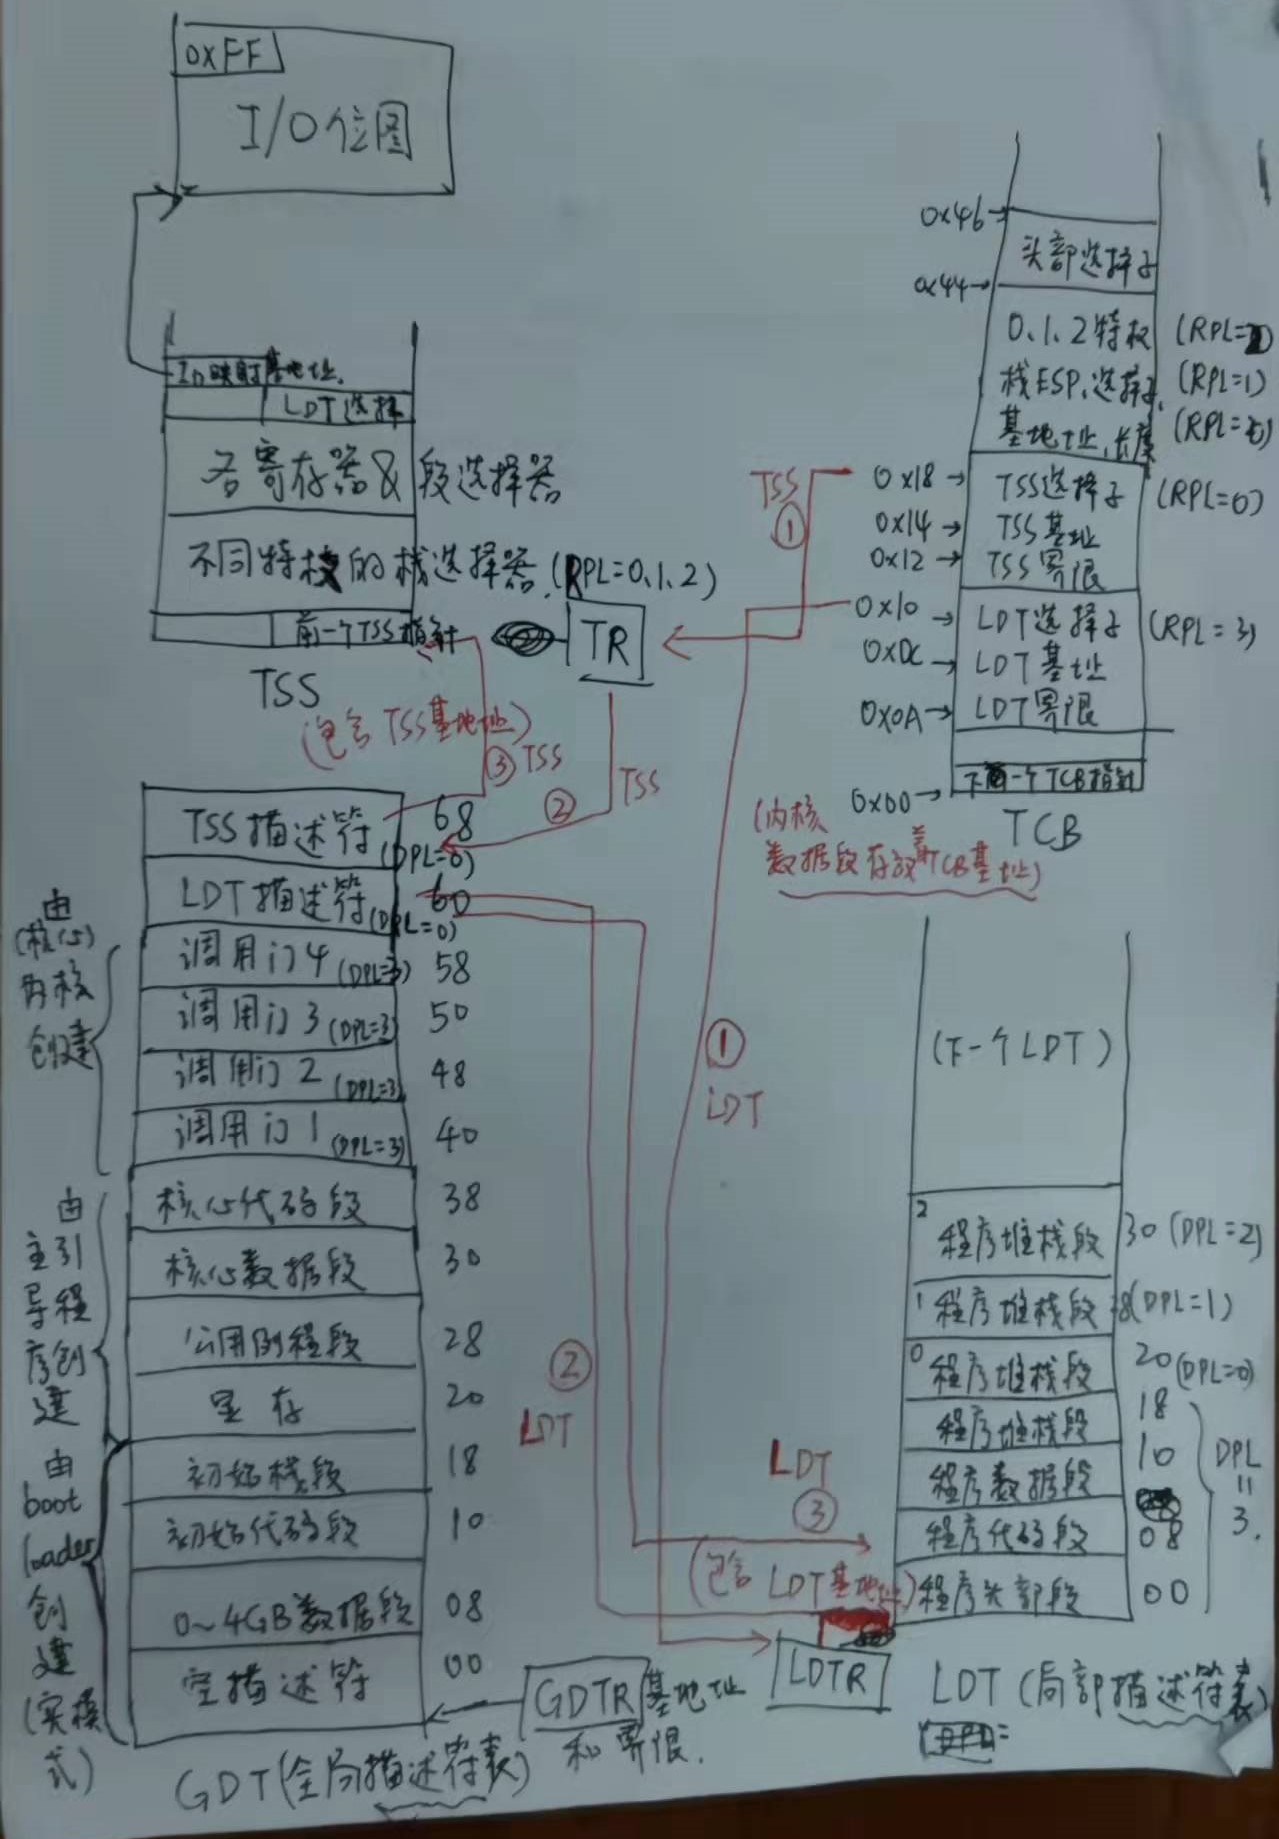 0xFF
I/O位图
IO映射基地址.
LDT选择
各寄存器&段选择器
不同特权的栈选择器.(RPL=0.1.2)
前一个TSS指针
TSS
TR
(包含TSS基地址)
③TSS
②
TSS
TSS
①
0x46→
头部选择子
0x44→
0.1.2特权
栈ESP.选择子.
(RPL=1)
基地址.长度
0x18→
TSS选择子
(RPL=0)
0x14→
TSS基址
0x12→
TSS界限
0x10→
LDT选择子
(RPL=3)
0x0C→
LDT基址
0x0A→
LDT界限
下一个TCB指针
0x00→
TCB
(内核
数据段存放着TCB基址)
TSS描述符
(DPL=0)
68
LDT描述符
(DPL=0)
60
调用门4
(DPL=3)
58
调用门3
(DPL=3)
50
调用门2
(DPL=3)
48
调用门1
(DPL=3)
40
核心代码段
38
核心数据段
30
公用例程段
28
显存
20
初始栈段
18
初始代码段
10
0~4GB数据段
08
空描述符
00
由
(核心)
内核
创建
由
主引
导程
序创
建
由
boot
loader
创
建
(实模
式)
GDT(全局描述符表)
GDTR
基地址
和界限.
①
LDT
②
LDT
LDT
③
(包含LDT基地址)
LDTR
(下一个LDT)
2
程序堆栈段
30(DPL=2)
1
程序堆栈段
(DPL=1)
0
程序堆栈段
20(DPL=0)
程序堆栈段
18
程序数据段
10
程序代码段
08
程序头部段
00
DPL
=
3.
LDT(局部描述符表)